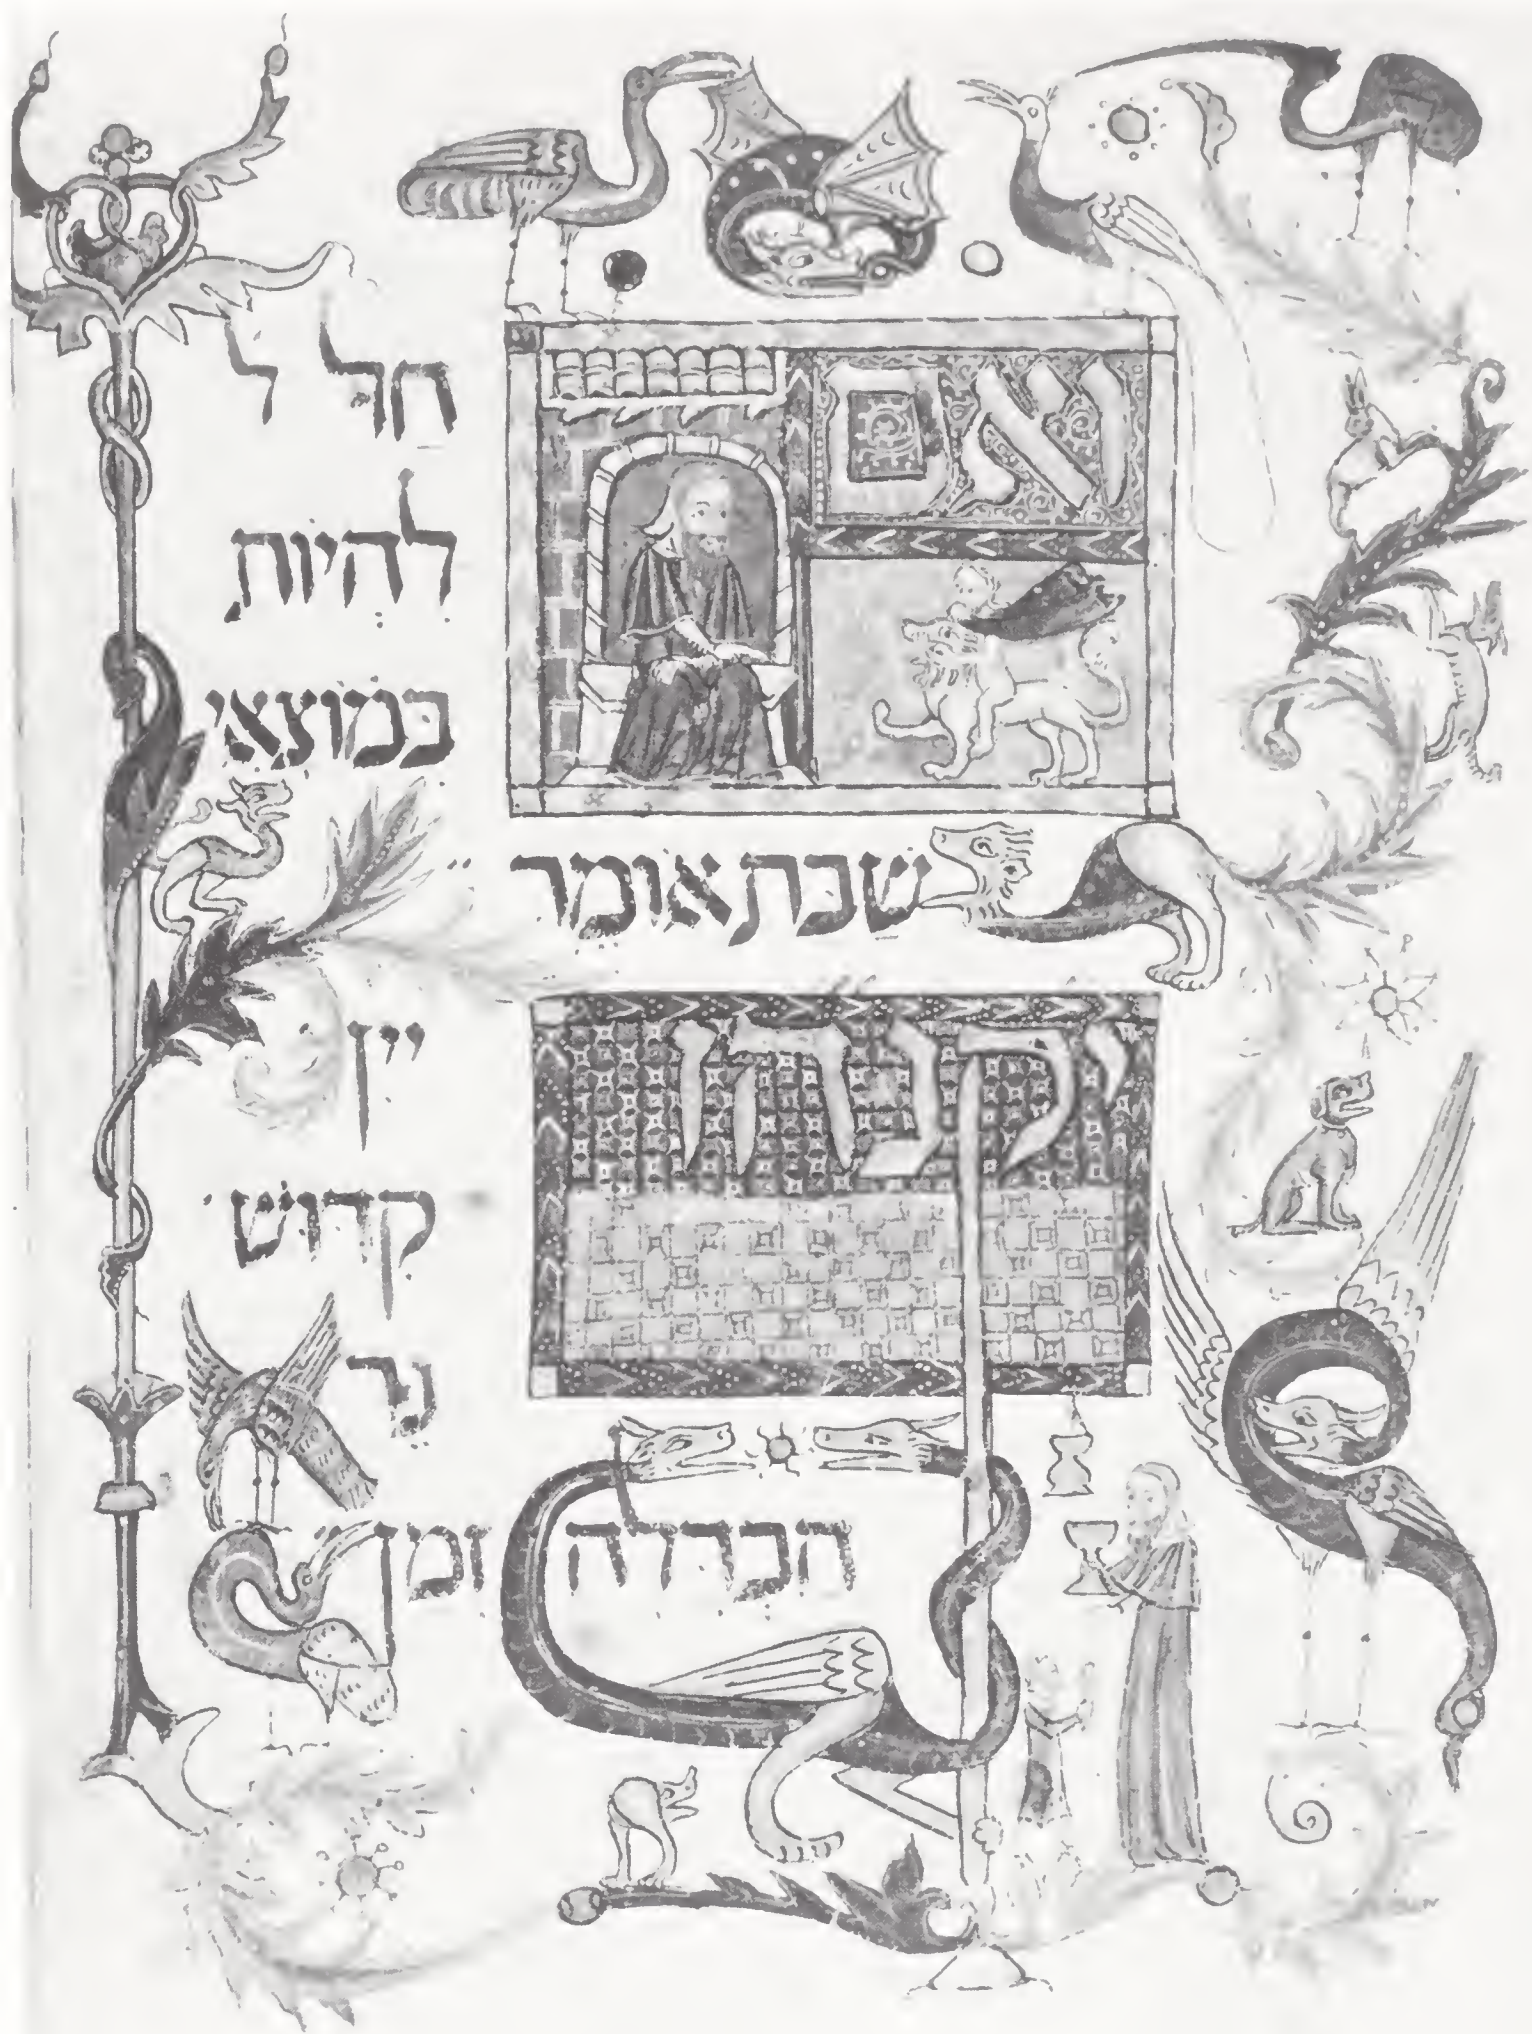 אם חל ל
להיות
במוצאי
שבת אומר
יקנהז
יין
קדוש
נר
הבדלה זמן